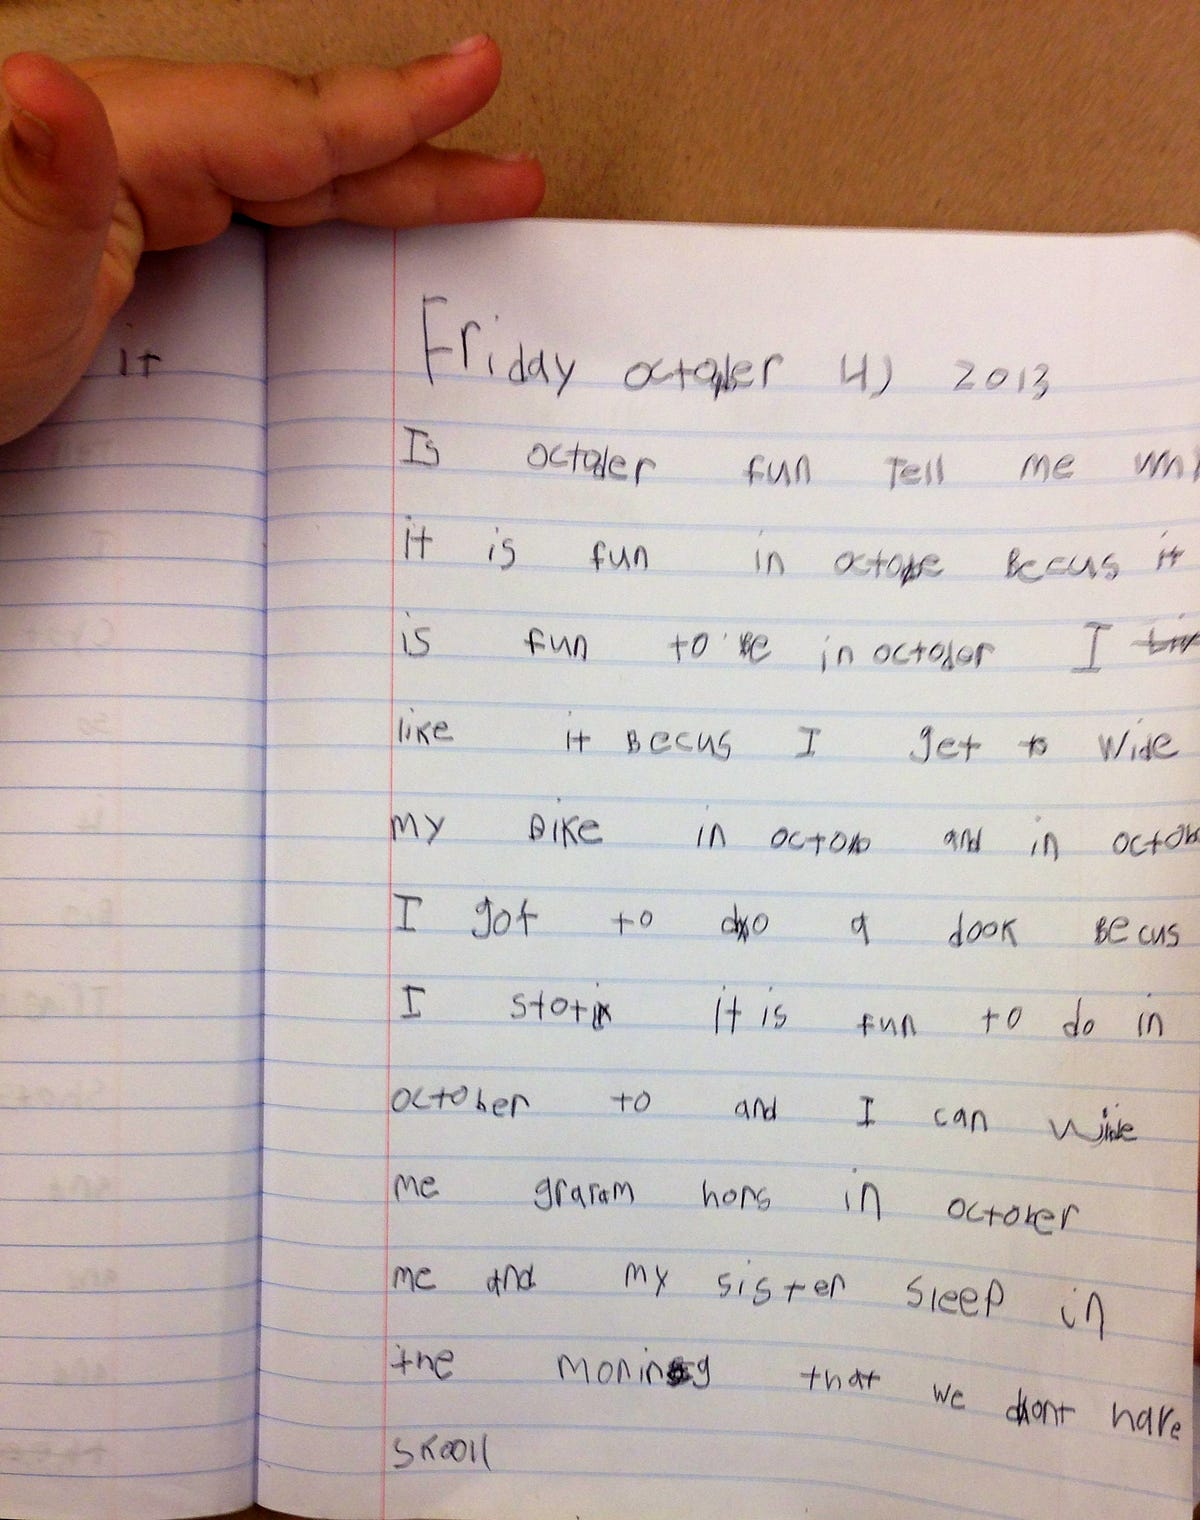 It
Friday october 4) 2013
Is october fun Tell me
it is fun in octobe Becus it
is fun to Be in october I
like it Becus I get to Wide
my Bike in octob and in octob
I got to do a dook Becus
I it is fun to do in
october to and I can
me graram hons in october
me and my sister sleep in
the moning that we dont have
skooll